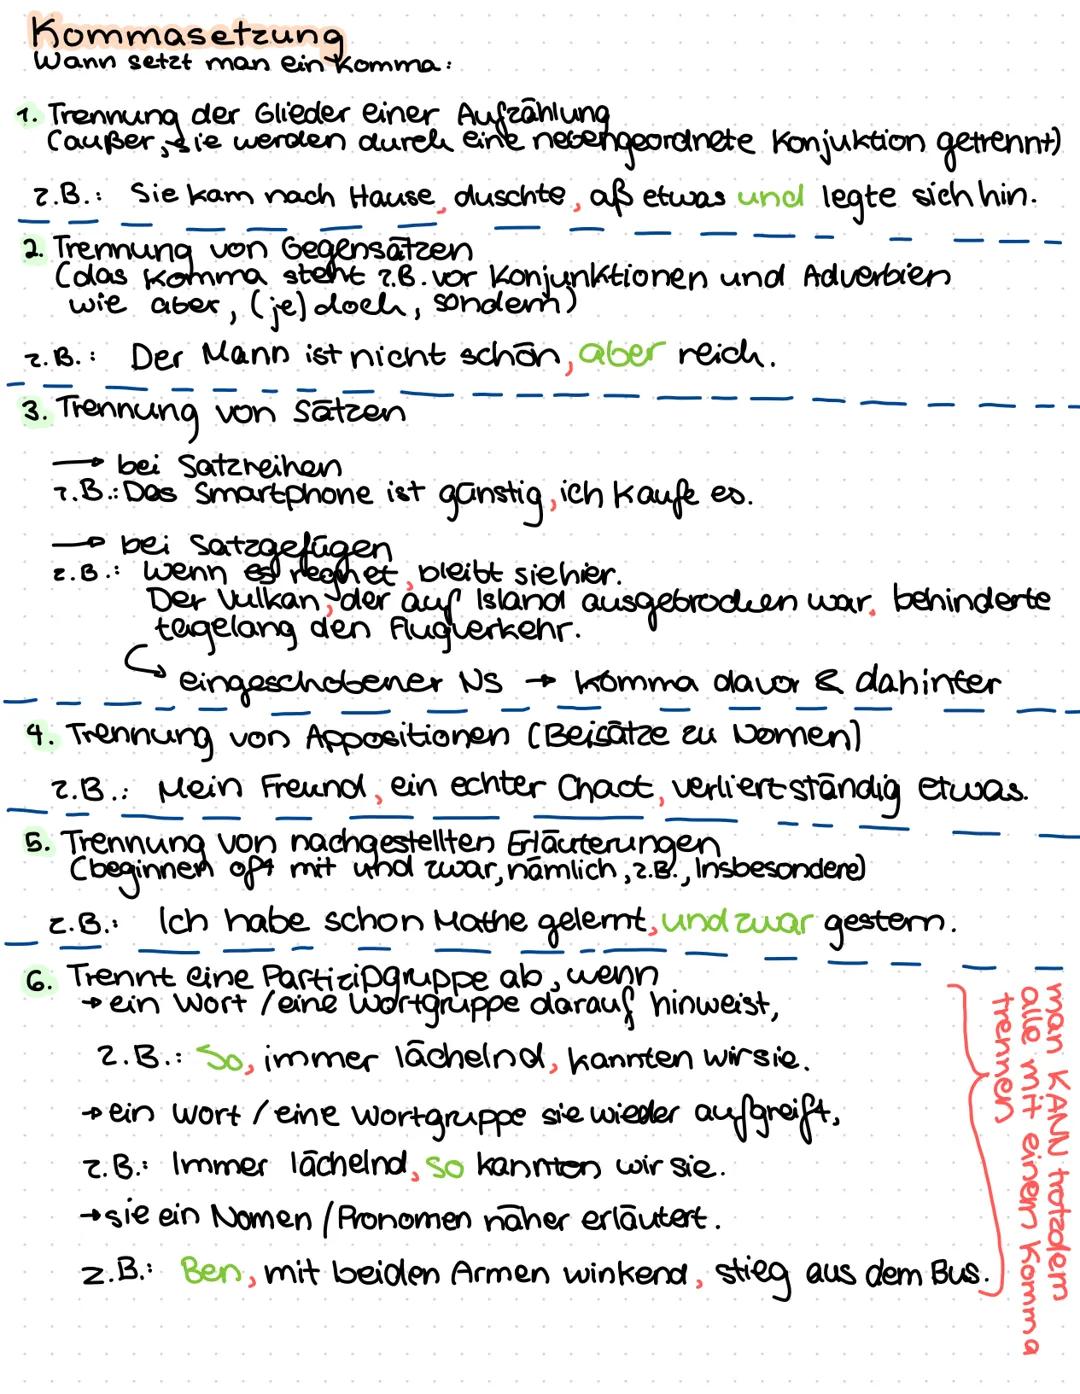 Kommasetzung
Wann setzt man ein Komma:
1. Trennung der Glieder einer Aufzählung
(außer, sie werden durch eine nebengeordnete Konjuktion getrennt)
z.B.: Sie kam nach Hause, duschte, aß etwas und legte sich hin.
2. Trennung von Gegensätzen
(das Komma steht z.B. vor Konjunktionen und Adverbien
wie aber, (je)doch, sondern)
z.B.: Der Mann ist nicht schön, aber reich.
3. Trennung von Sätzen
→ bei Satzreihen
z.B.: Das Smartphone ist günstig, ich kaufe es.
→ bei Satzgefügen
z.B.: Wenn es regnet, bleibt sie hier.
Der Vulkan, der auf Island ausgebrochen war, behinderte
tagelang den Flugverkehr.
↳ eingeschobener NS → Komma davor & dahinter
4. Trennung von Appositionen (Beisätze zu Nomen)
z.B.: Mein Freund, ein echter Chaot, verliert ständig etwas.
5. Trennung von nachgestellten Erläuterungen
(beginnen oft mit und zwar, nämlich, z.B., Insbesondere)
z.B.: Ich habe schon Mathe gelernt, und zwar gestern.
6. Trennt eine Partizipgruppe ab, wenn
→ ein Wort / eine Wortgruppe darauf hinweist,
z.B.: So, immer lächelnd, kannten wir sie.
→ ein Wort / eine Wortgruppe sie wieder aufgreift,
z.B.: Immer lächelnd, so kannten wir sie.
→ sie ein Nomen / Pronomen näher erläutert.
z.B.: Ben, mit beiden Armen winkend, stieg aus dem Bus.
man KANN trotzdem
alle mit einem Komma
trennen